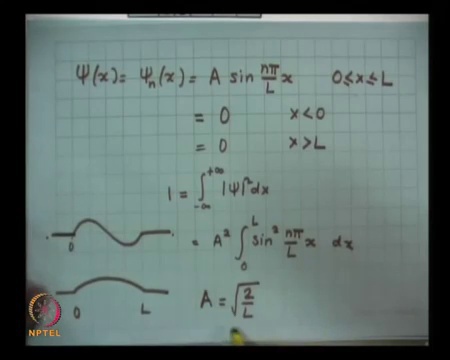 Ψ(x) = Ψn(x) = A sin nπ/L x 0 ≤ x ≤ L
= 0 x < 0
= 0 x > L
1 = ∫_{-∞}^{+∞} |Ψ|² dx
= A² ∫_0^L sin² nπ/L x dx
0
A = √(2/L)
0 L
NPTEL